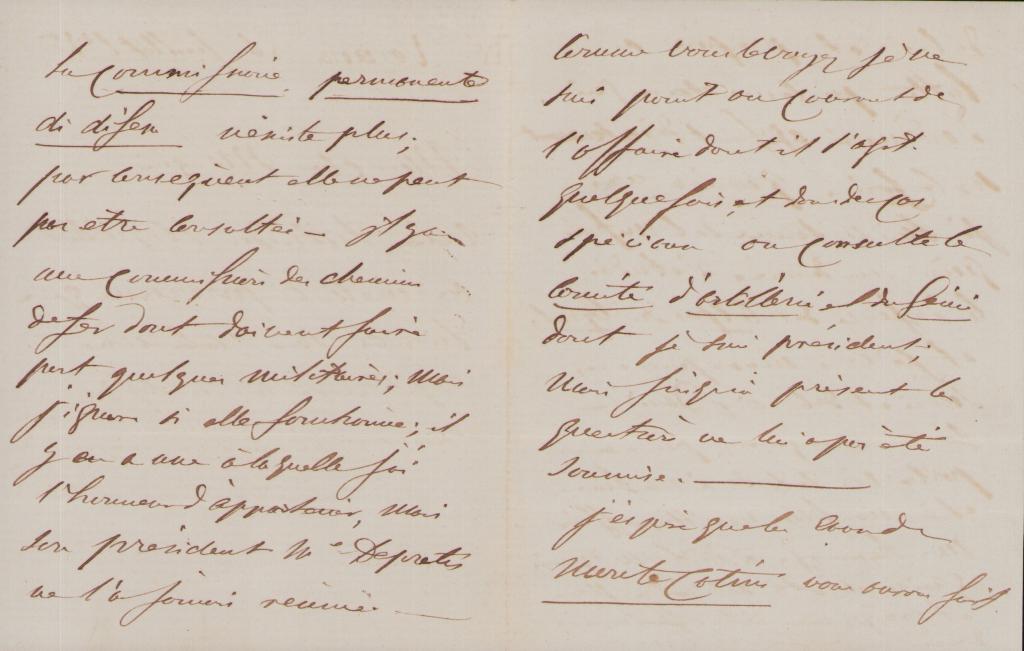 La commissione permanente
di difesa n'existe plus;
par conséquent elle ne peut
pas être consultée – il y a
une commission des chemins
de fer dont doivent faire
part quelques militaires; mais
j'ignore si elle fonctionne; il
y en a une à laquelle j'ai
l'honneur d'appartenir, mais
son président Mr Depretis
ne l'a jamais réunie. –
Comme vous le voyez je ne
suis point au courant de
l'affaire dont il s'agit.
Quelque fois, et dans des cas
spéciaux on consulte le
Comité d'artillerie et du Génie
dont je suis président;
mais jusqu'à présent la
question ne lui a pas été
soumise. –
J'espère que les eaux de
Monte Catini vous auront fait